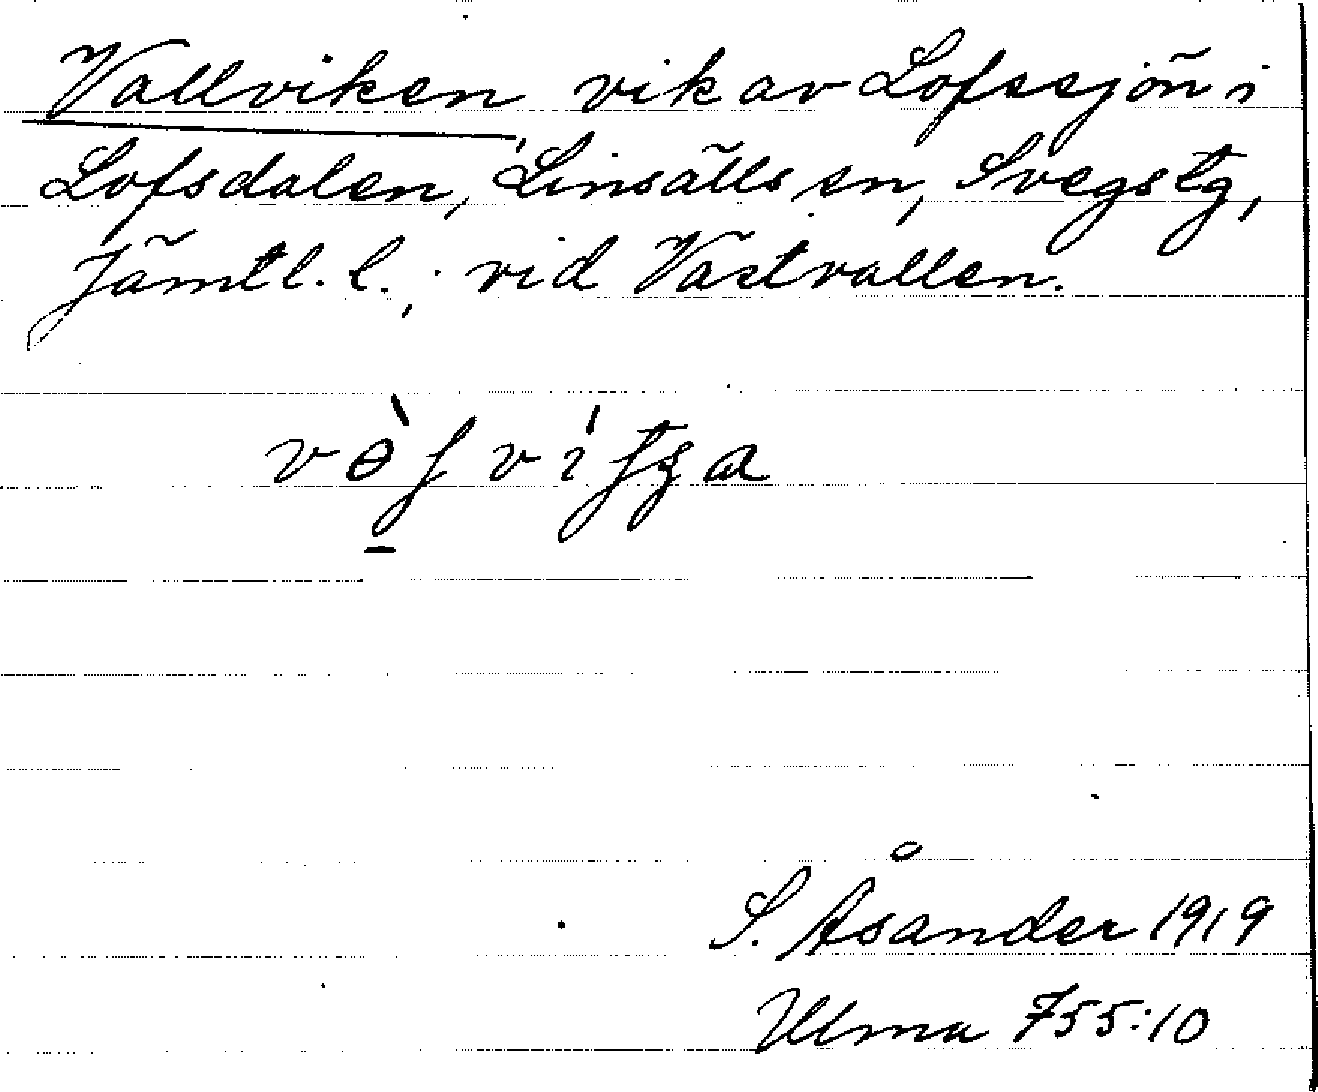 Vallviken, vik av Lofssjön i
Lofsdalen, Linsälls sn, Svegs tg,
Jämtl. l.; vid Västvallen.
S. Åsander 1919
Ulma 755:10